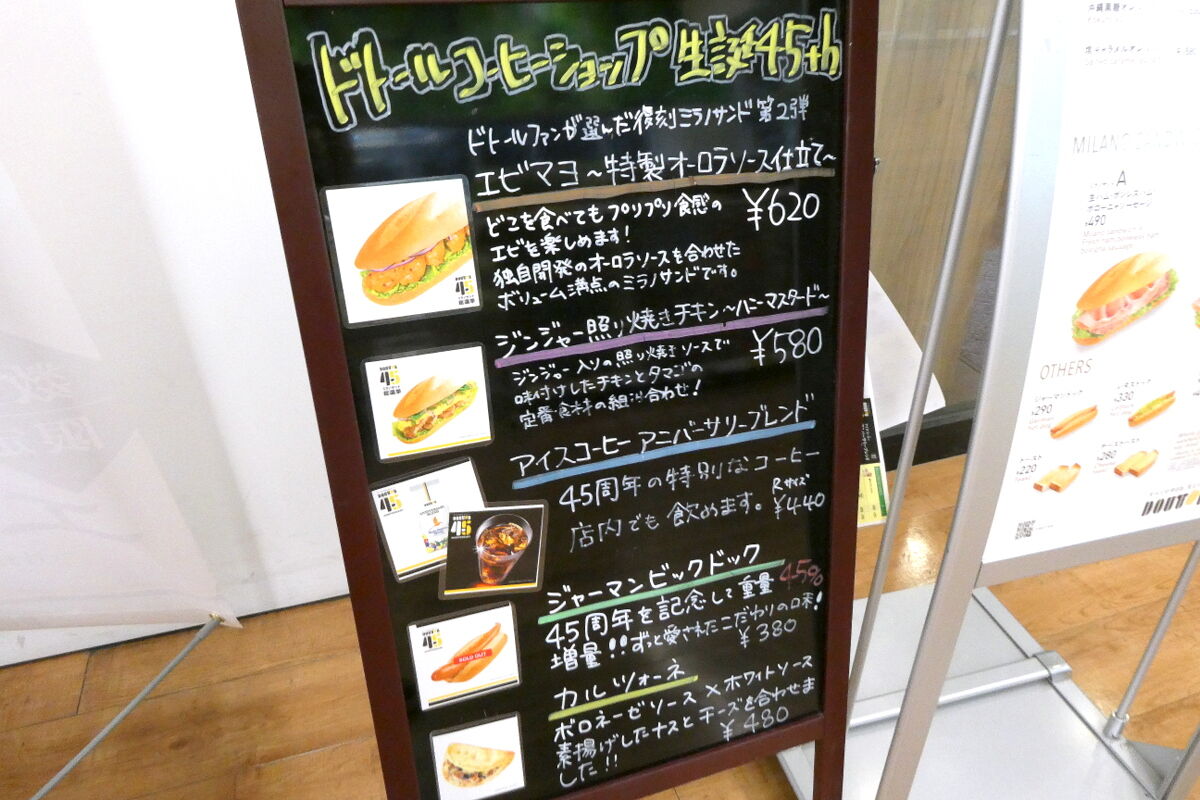 ドトールコーヒーショップ生誕45th
ドトールファンが選んだ復刻ミラノサンド第2弾
エビマヨ～特製オーロラソース仕立て～
¥620
どこを食べてもプリプリ食感の
エビを楽しめます!
独自開発のオーロラソースを合わせた
ボリューム満点のミラノサンドです。
45
ジンジャー照り焼きチキン～ハニーマスタード～
¥580
ジンジャー入りの照り焼きソースで
味付けしたチキンとタマゴの
定番食材の組み合わせ!
45
総選挙
アイスコーヒーアニバーサリーブレンド
45周年の特別なコーヒー
店内でも飲めます。
Rサイズ
¥440
45
45
ジャーマンビックドック
45周年を記念して重量45%
増量!!ずっと愛されたこだわりの口味!
¥380
45
SOLD OUT
カルツォーネ
ボロネーゼソース×ホワイトソース
素揚げしたナスとチーズを合わせま
した!!
¥480
MILANO
A
¥490
OTHERS
ジャーマンドック
¥290
¥330
トースト
¥220
¥280
DOUTOR